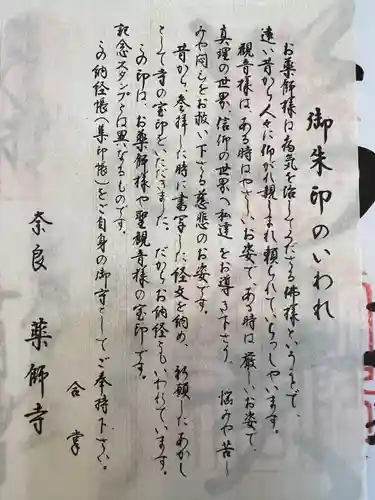 御朱印のいわれ
お薬師様は病気を治して下さる佛様というので、
遠い昔から人々に仰がれ親しまれ頼られて、いらっしゃいます。
観音様は、ある時はやさしいお姿で、ある時は厳しいお姿で、
真理の世界、信仰の世界へ私達をお導き下さり、悩みや苦し
みや悶えをお救い下さる慈悲のお姿です。
昔から、参拝した時に書写した経文を納め、祈願したあかし
として寺の宝印をいただきました。だからお納経ともいわれています。
この印は、お薬師様や聖観音様の宝印です。
記念スタンプとは異なるものです。
この納経帳(集印帳)をご自身の御守としてご奉持下さい。
合掌
奈良 薬師寺